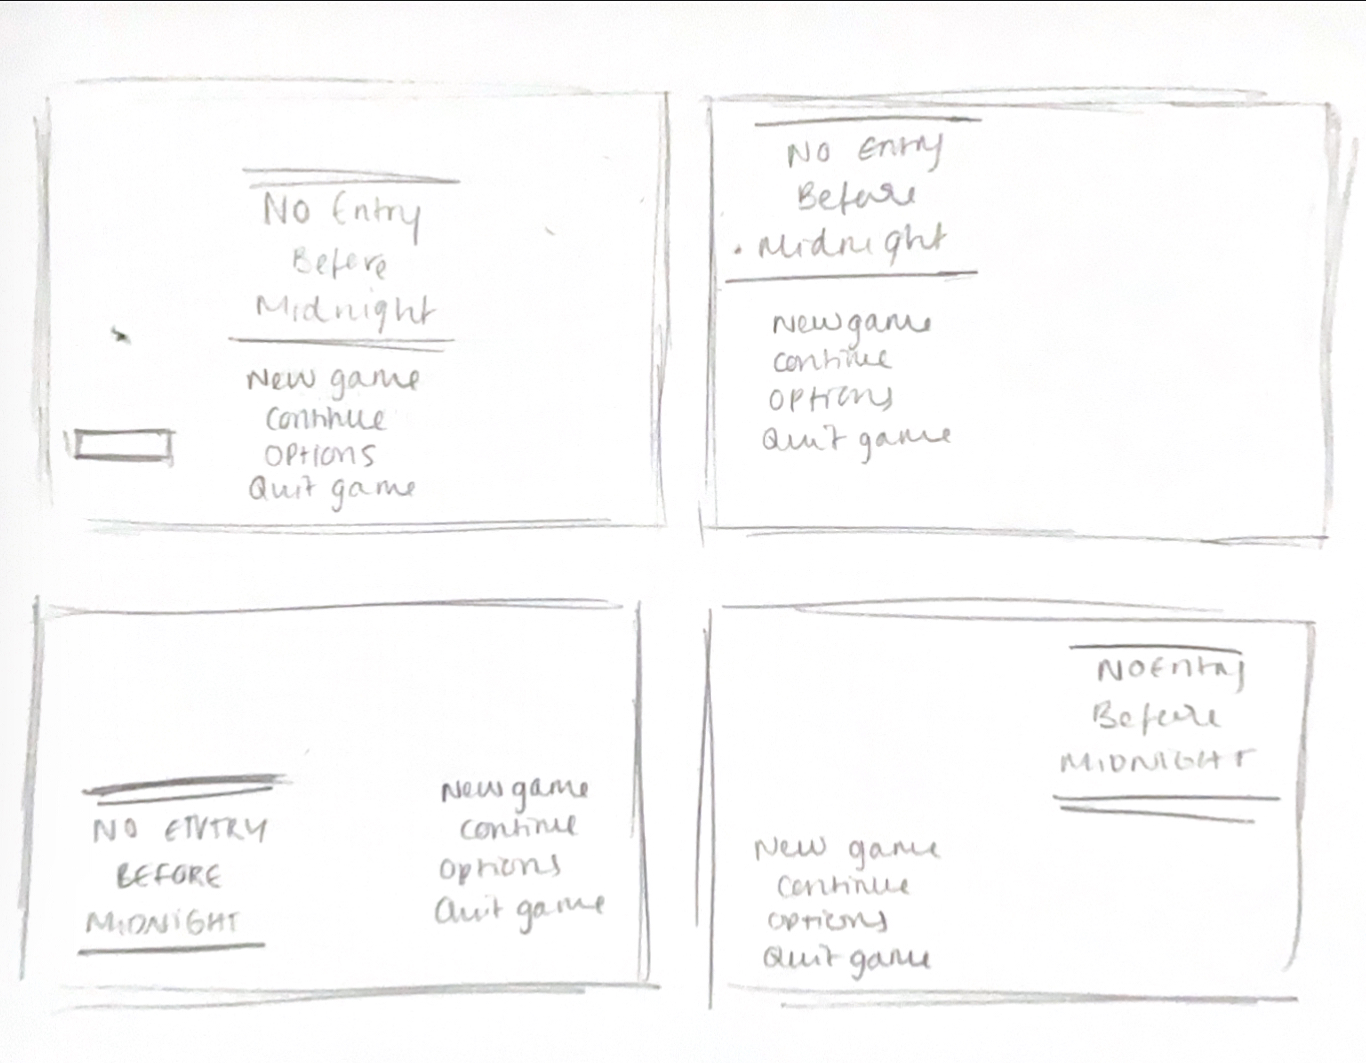 No Entry
Before
Midnight
New game
Continue
Options
Quit game
No Entry
Before
Midnight
New game
Continue
Options
Quit game
NO ENTRY
BEFORE
MIDNIGHT
New game
Continue
Options
Quit game
No Entry
Before
MIDNIGHT
New game
Continue
Options
Quit game